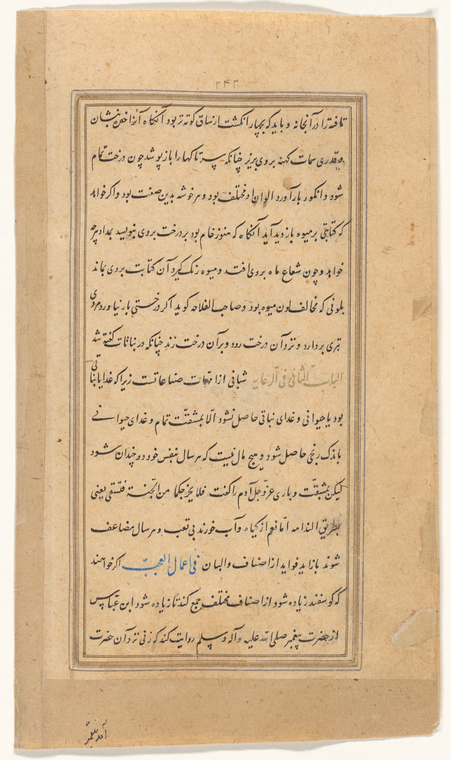 ۲۴۳
تافته را در آنجا نه و باید که بچهار انگشت از ساق کوته تر بود آنگاه آنرا خوه بنشان
و قدری سمات کهنه بروی بریز چنانکه تاکها را باز پوشد چون درخت تمام
شود و انگور بار آورد الوان و مختلف بود و هر خوشه بدین صفت بود و اگر خواهد
که کتابتی بر میوه بازدید آید آنگاه که هنوز خام بود بر درخت بروی بنویسد بمداد هرچه
خواهد و چون شعاع ماه بروی افتد و میوه رنگ گیرد آن کتابت بروی بماند
بلونی که مخالف لون میوه بود و صاحب الفلاحه گوید اگر درختی بار نیاورد مردی
تبری بردارد و نزد آن درخت رود و بر آن درخت زند چنانکه در نباتات گفته شد
الباب الثانی فی الرعایه شبانی از امهات صناعاتست زیرا که غذا یا نباتی
بود یا حیوانی و غدای نباتی حاصل نشود الا بمشقت تمام و غدای حیوانی
باندک رنجی حاصل شود و هیچ مال نیست که هر سال بنفس خود دو چندان شود
لیکن بمشقت و باری عز و جل آدم را گفت فلا یخرجنکما من الجنة فتشقی یعنی
بطریق الندامه اما نعم از گیاه و آب خورند بی تعب و هر سال مضاعف
شوند باز اید فواید از اصناف و البان فی اعمال العجیب اگر خواهند
که گوسفند زیاده شود از اصناف مختلف جمع کند تا زیاده شود ابن عباس
از حضرت پیغمبر صلی الله علیه و آله و سلم روایت کند که زنی نزد آن حضرت
آمد